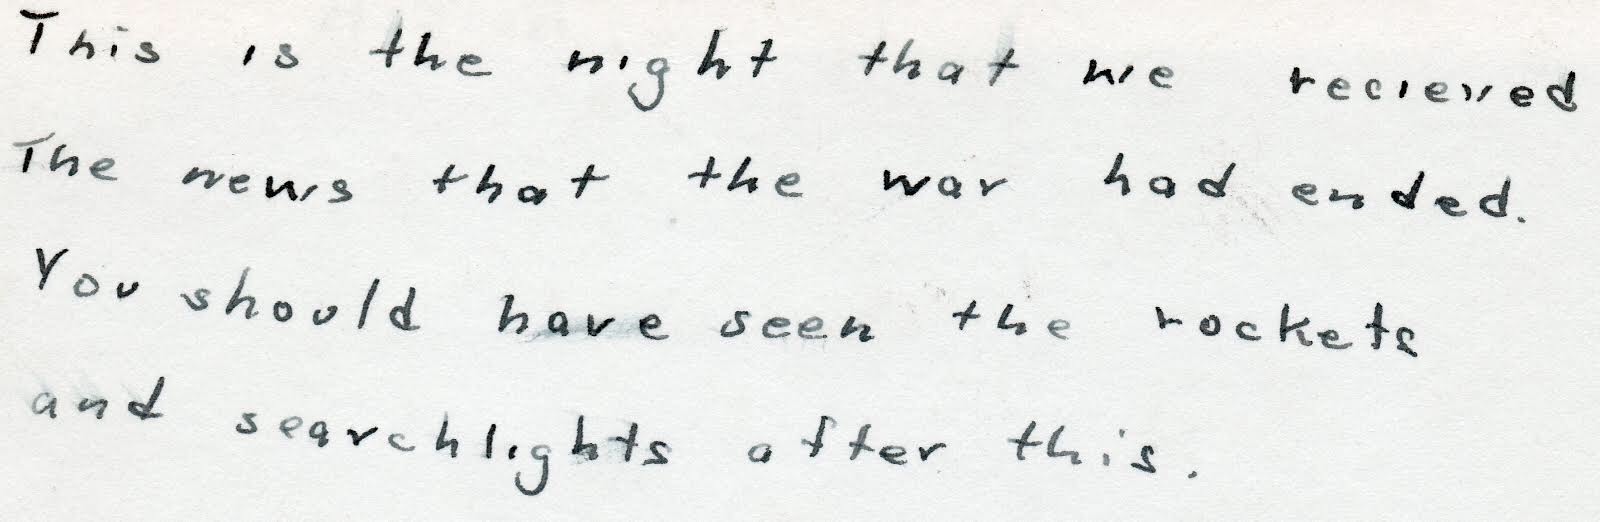 This is the night that we recieved
The news that the war had ended.
You should have seen the rockets
and searchlights after this.